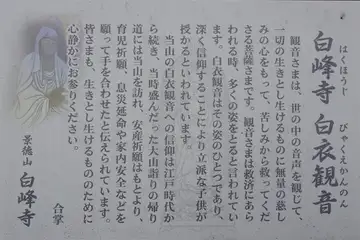 白峰寺 白衣観音
はくほうじ びゃくえかんのん
観音さまは、世の中の音を観じて、
一切の生きとし生けるものに無量の慈し
みの心をもって、苦しみから救ってくだ
さる菩薩さまです。観音さまは救済にあら
われる時、多くの姿をとると言われてい
ます。白衣観音はその姿のひとつであり、
深く信仰することにより立派な子供が
授かるといわれています。
当山の白衣観音への信仰は江戸時代か
ら続き、当時盛んだった大山詣りの帰り
道には当山を訪れ、安産祈願はもとより、
育児祈願、息災延命や家内安全などを
願って手を合わせたと伝えられています。
皆さまも、生きとし生けるもののために
心静かにお参りください。
合掌
景徳山 白峰寺